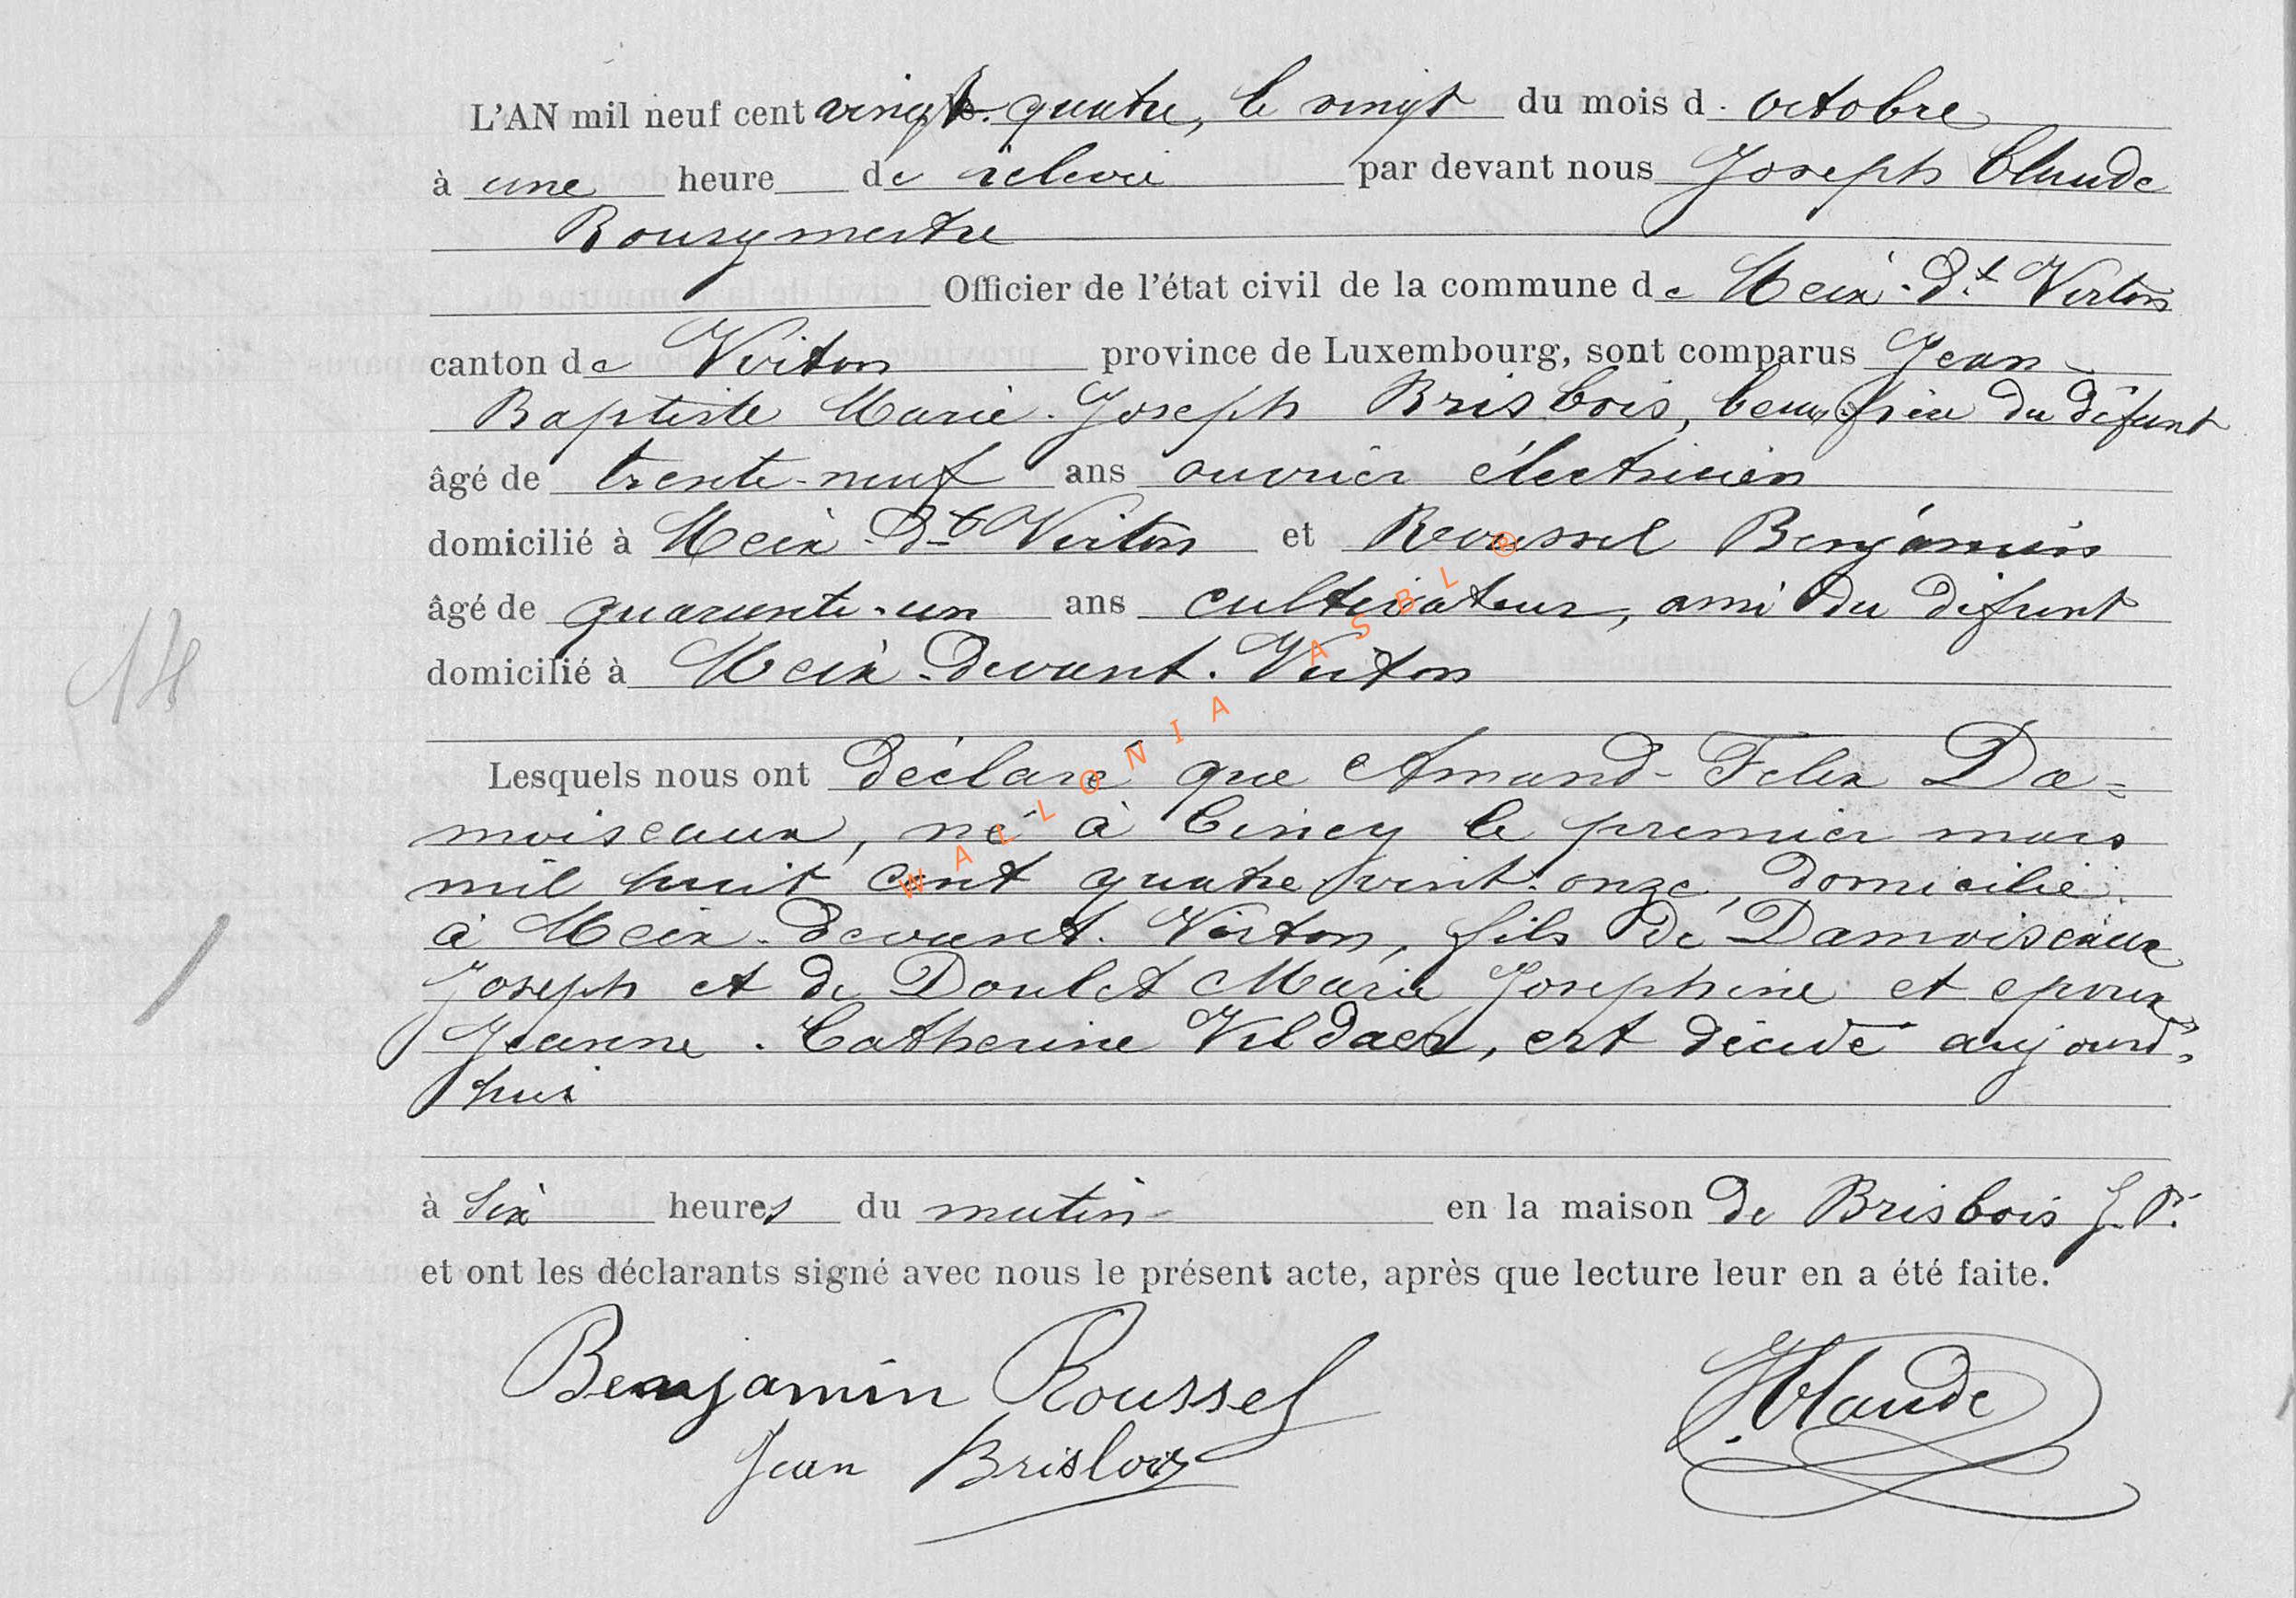 L'AN mil neuf cent vingt-quatre, le vingt du mois d'octobre
à une heure de relevée par devant nous Joseph Claude
Bourgmestre
Officier de l'état civil de la commune de Meix-dt Virton
canton de Virton province de Luxembourg, sont comparus Jean
Baptiste Marie-Joseph Brisbois, beau-frère du défunt
âgé de trente-neuf ans ouvrier électricien
domicilié à Meix-dt Virton et Roussel Benjamin
âgé de quarante-un ans cultivateur, ami du défunt
domicilié à Meix-Devant-Virton
14
Lesquels nous ont déclaré que Amand-Felix Da=
moiseaux, né à Ciney le premier mars
mil huit cent quatre vint-onze, domicilié
à Meix-devant-Virton, fils de Damoiseaux
Joseph et de Doulet Marie Josephine et epoux
Jeanne-Catherine Vildaer, est décédé aujourd'
hui
à six heures du matin en la maison de Brisbois J. Bte
et ont les déclarants signé avec nous le présent acte, après que lecture leur en a été faite.
Benjamin Roussel
J. Claude
Jean Brisbois
WALLONIA ASBL ®